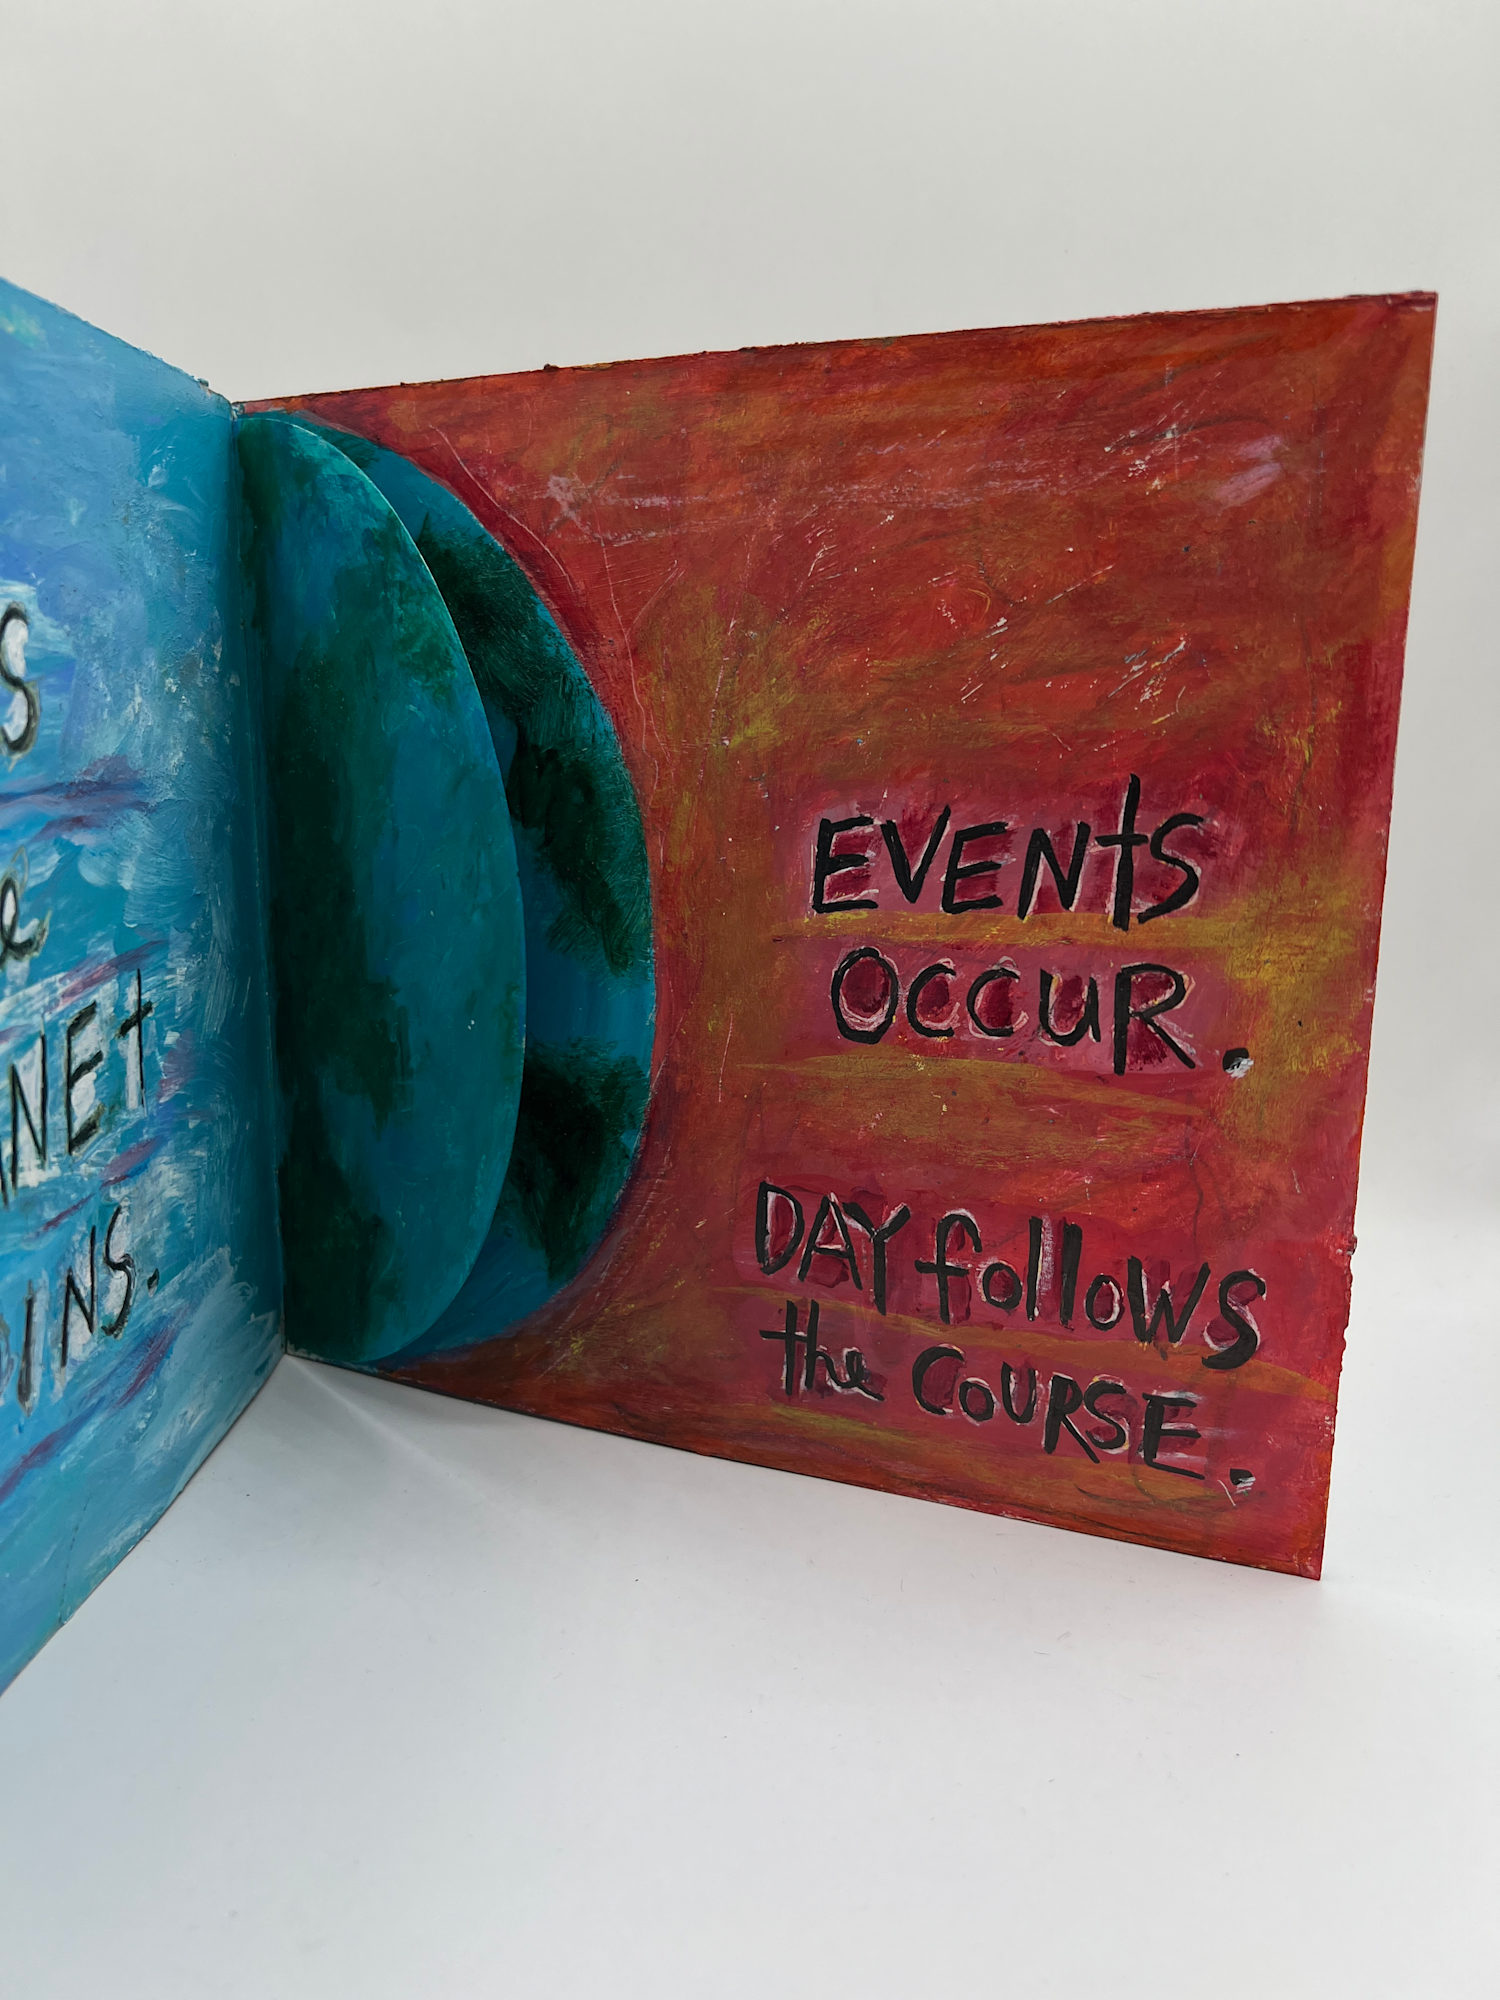 S
e
NEt
INS.
EVENtS
OCCUR.
DAY follows
the COURSE.